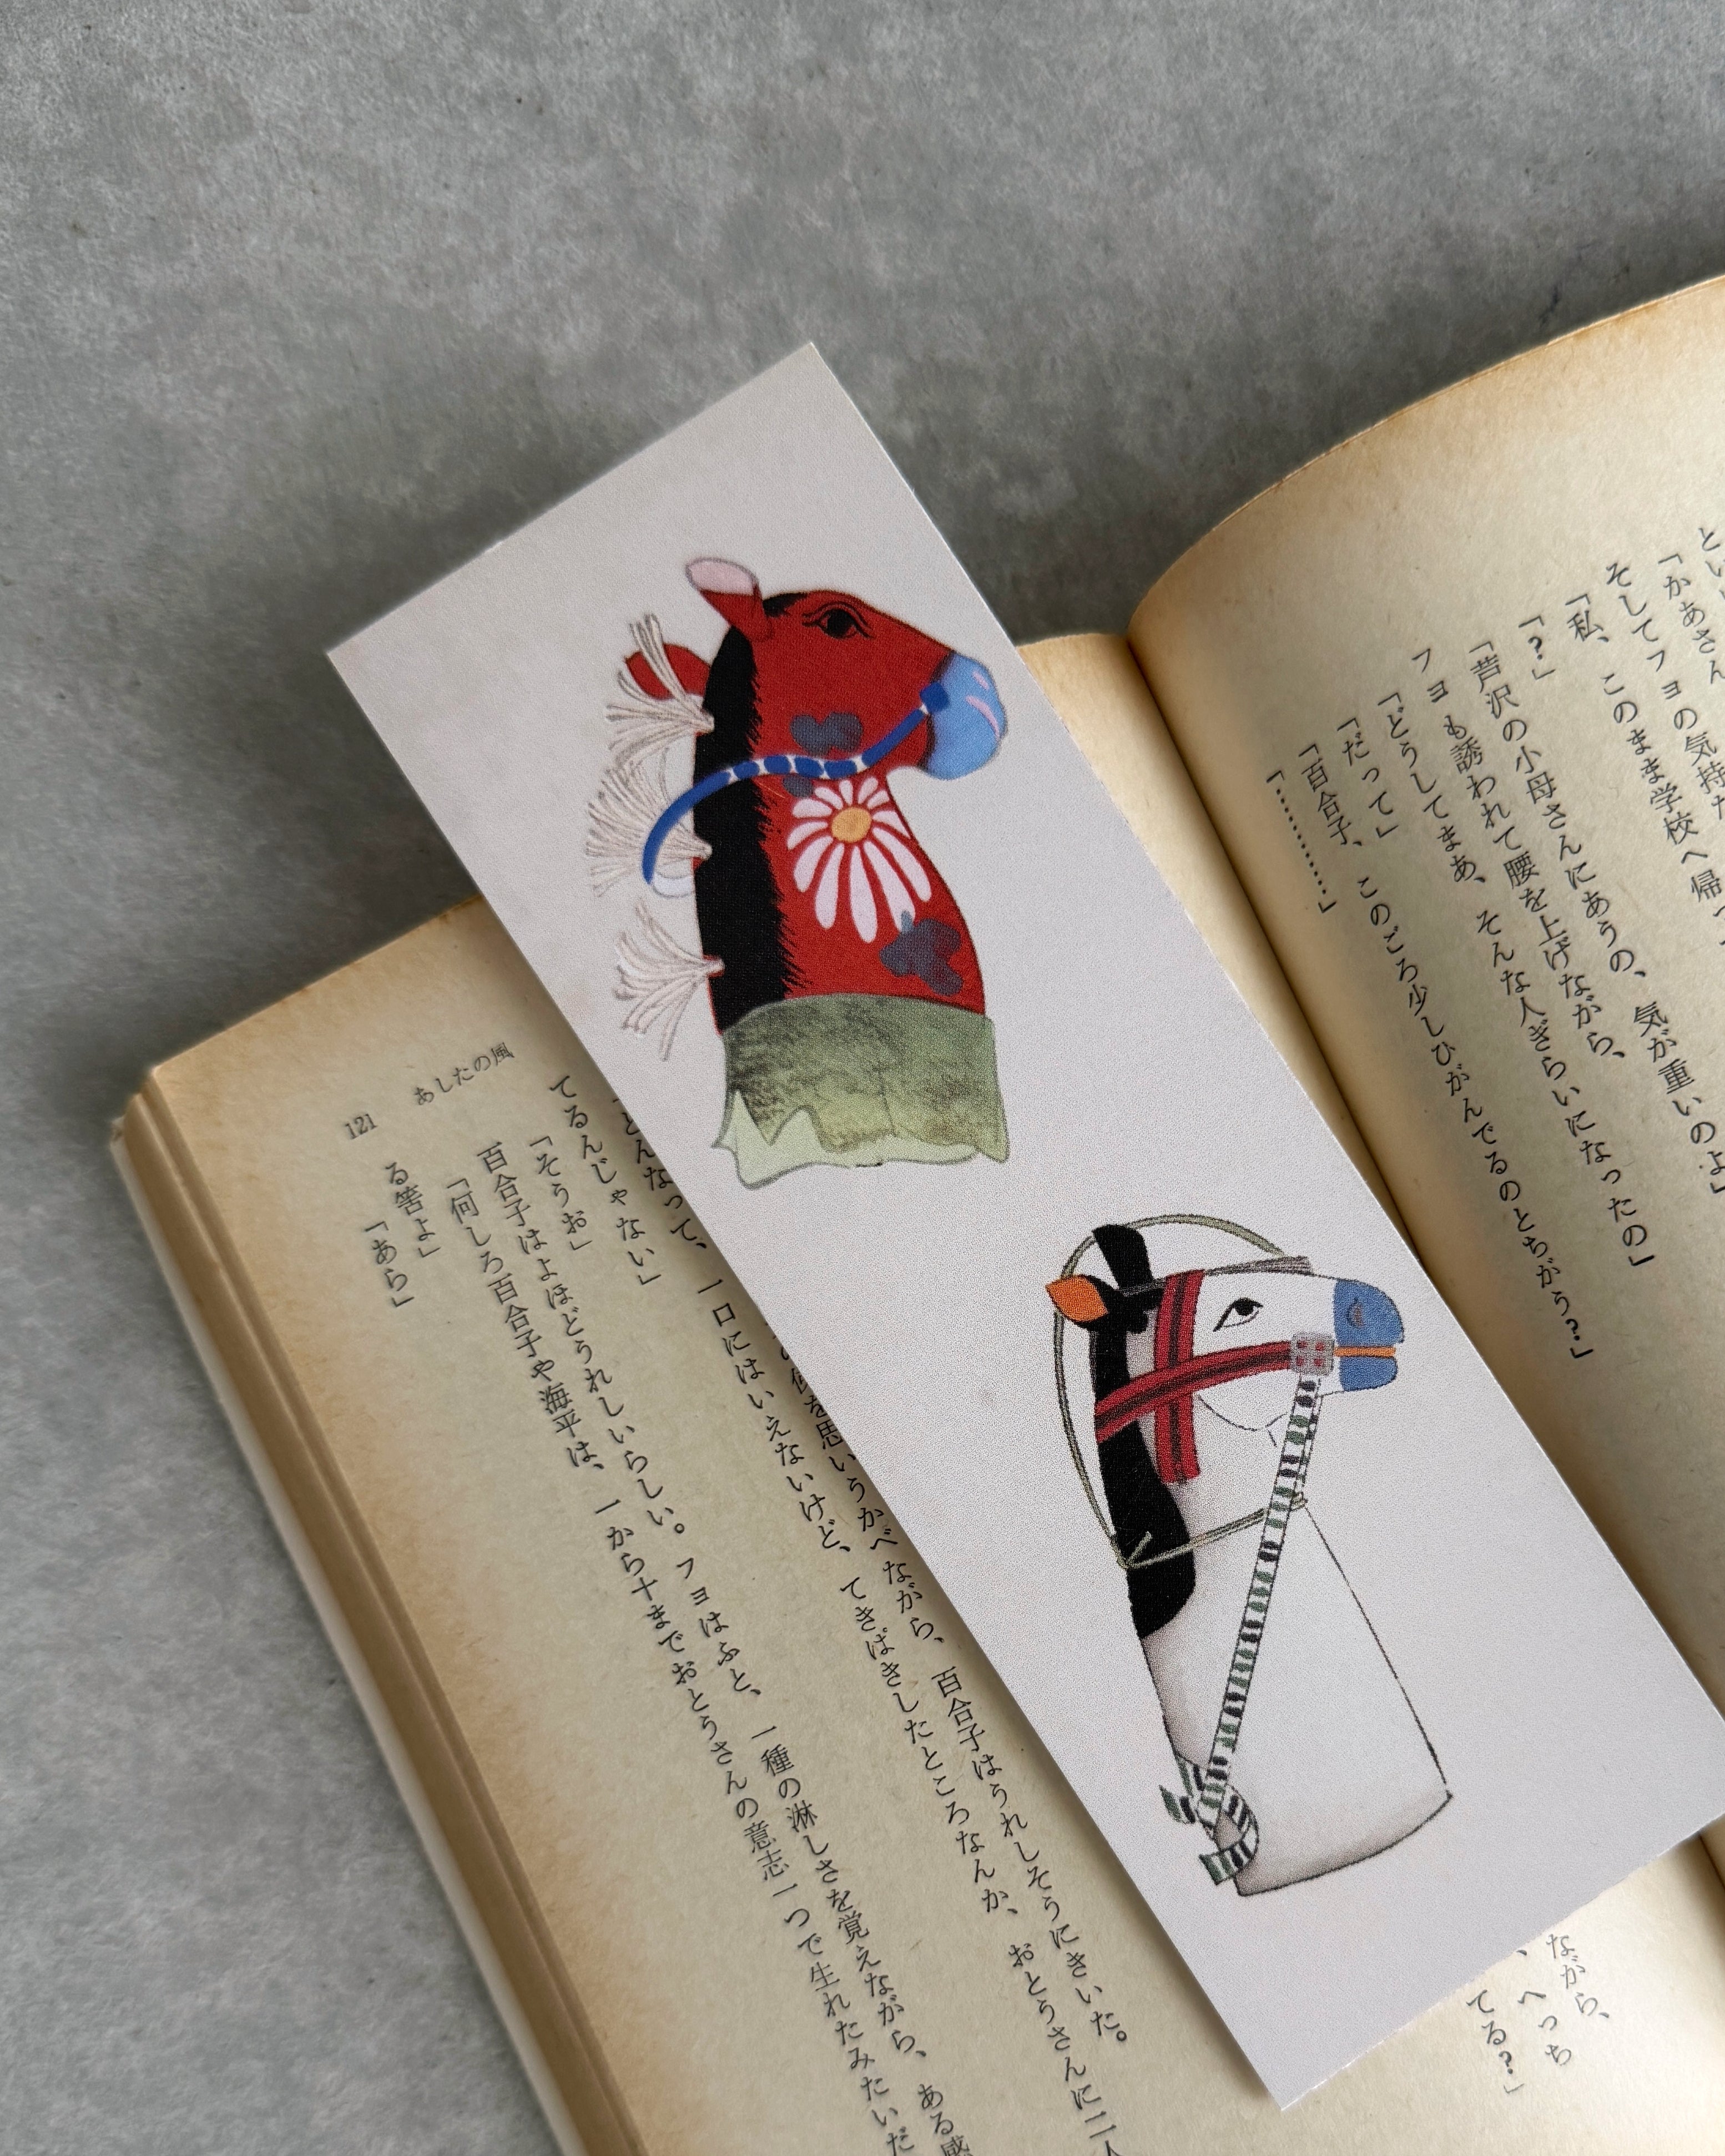 「かあさん
そしてフヨの気持
「私、このまま学校へ帰っ
「？」
「芦沢の小母さんにあうの、気が重いのよ」
フヨも誘われて腰を上げながら、
「どうしてまあ、そんな人ぎらいになったの」
「だって」
「百合子、このごろ少しひがんでるのとちがう？」
「…………」
121 あしたの風
ながら、
、へっち
てる？」
を思いうかべながら、百合子はうれしそうにきいた。
どんなって、一口にはいえないけど、てきぱきしたところなんか、おとうさんに二人
てるんじゃない」
「そうお」
百合子はよほどうれしいらしい。フヨはふと、一種の淋しさを覚えながら、ある感
「何しろ百合子や海平は、一から十までおとうさんの意志一つで生れたみたいだ
る筈よ」
「あら」